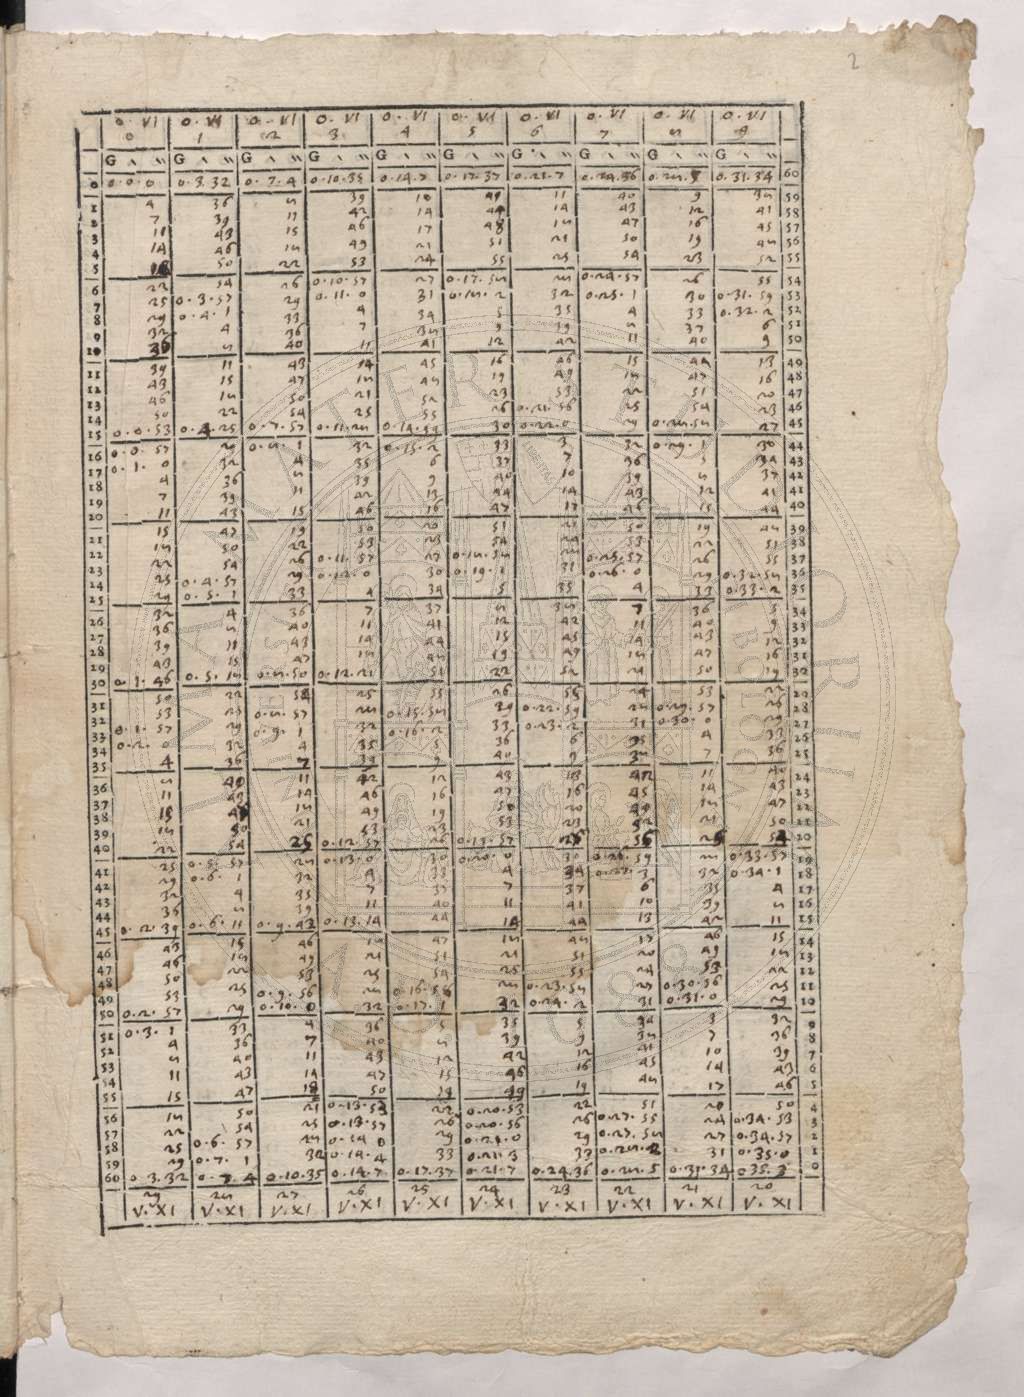 0. VI 0. VI 0. VI 0. VI 0. VI 0. VI 0. VI 0. VI 0. VI 0. VI
0 1 2 3 4 5 6 7 8 9
G ′ ″ G ′ ″ G ′ ″ G ′ ″ G ′ ″ G ′ ″ G ′ ″ G ′ ″ G ′ ″ G ′ ″
0 0.0.0 0.3.32 0.7.4 0.10.35 0.14.7 0.17.37 0.21.7 0.24.36 0.28.5 0.31.34 60
1 4 36 8 39 10 41 11 40 9 38 59
2 7 39 11 42 14 44 14 43 12 41 58
3 11 43 15 46 17 48 18 47 16 45 57
4 14 46 18 49 21 51 21 50 19 48 56
5 18 50 22 53 24 55 25 54 23 52 55
6 22 54 26 0.10.57 27 0.17.58 28 0.24.57 26 55 54
7 25 0.3.57 29 0.11.0 31 0.18.2 32 0.25.1 30 0.31.59 53
8 29 0.4.1 33 4 34 5 35 4 33 0.32.2 52
9 32 4 36 7 38 9 39 8 37 6 51
10 36 8 40 11 41 12 42 11 40 9 50
11 39 11 43 14 45 16 46 15 44 13 49
12 43 15 47 18 48 19 49 18 47 16 48
13 46 18 50 21 52 23 53 22 51 20 47
14 50 22 54 25 55 26 0.21.56 25 54 23 46
15 0.0.53 0.4.25 0.7.57 0.11.28 0.14.59 30 0.22.0 29 0.28.58 27 45
16 0.0.57 29 0.8.1 32 0.15.2 33 3 32 0.29.1 30 44
17 0.1.0 32 4 35 6 37 7 36 5 34 43
18 4 36 8 39 9 40 10 39 8 37 42
19 7 39 11 42 13 44 14 43 12 41 41
20 11 43 15 46 16 47 17 46 15 44 40
21 15 47 19 50 20 51 21 50 19 48 39
22 18 50 22 53 23 54 24 53 22 51 38
23 22 54 26 0.11.57 27 0.18.58 28 0.25.57 26 55 37
24 25 0.4.57 29 0.12.0 30 0.19.1 31 0.26.0 29 0.32.58 36
25 29 0.5.1 33 4 34 5 35 4 33 0.33.2 35
26 32 4 36 7 37 8 38 7 36 5 34
27 36 8 40 11 41 12 42 11 40 9 33
28 39 11 43 14 44 15 45 14 43 12 32
29 43 15 47 18 48 19 49 18 47 16 31
30 0.1.46 0.5.18 0.8.50 0.12.21 51 22 52 21 50 19 30
31 50 22 54 25 55 26 56 24 53 22 29
32 53 25 0.8.57 28 0.15.58 29 0.22.59 28 0.29.57 26 28
33 0.1.57 29 0.9.1 32 0.16.2 33 0.23.2 31 0.30.0 29 27
34 0.2.0 32 4 35 5 36 6 35 4 33 26
35 4 36 7 39 9 40 9 38 7 36 25
36 8 40 11 42 12 43 13 42 11 40 24
37 11 43 14 46 16 47 16 45 14 43 23
38 15 47 18 49 19 50 20 49 18 47 22
39 18 50 21 53 23 53 23 52 21 50 21
40 22 54 25 0.12.57 26 0.19.57 26 56 25 54 20
41 25 0.5.57 28 0.13.0 30 0.20.0 30 0.26.59 28 0.33.57 19
42 29 0.6.1 32 4 33 4 34 0.27.3 32 0.34.1 18
43 32 4 35 7 37 7 37 6 35 4 17
44 36 8 39 11 40 11 41 10 39 8 16
45 0.2.39 0.6.11 0.9.42 0.13.14 44 14 44 13 42 11 15
46 43 15 46 18 47 18 48 17 46 15 14
47 46 18 49 21 51 21 51 20 49 18 13
48 50 22 53 25 54 25 55 24 53 22 12
49 53 25 0.9.56 28 0.16.58 28 0.23.58 27 0.30.56 25 11
50 0.2.57 29 0.10.0 32 0.17.1 32 0.24.2 31 0.31.0 29 10
51 0.3.1 33 4 36 5 35 5 34 3 32 9
52 4 36 7 40 8 39 9 38 7 36 8
53 8 40 11 43 12 42 12 41 10 39 7
54 11 43 14 47 15 46 16 45 14 43 6
55 15 47 18 50 19 49 19 48 17 46 5
56 18 50 21 0.13.53 22 0.20.53 22 51 20 50 4
57 22 54 25 0.13.57 26 0.20.56 26 0.27.55 24 0.34.53 3
58 25 0.6.57 28 0.14.0 29 0.21.0 29 0.27.58 27 0.34.57 2
59 29 0.7.1 32 0.14.4 33 0.21.3 33 0.28.2 31 0.35.0 1
60 0.3.32 0.7.4 0.10.35 0.14.7 0.17.37 0.21.7 0.24.36 0.28.5 0.31.34 0.35.3 0
29 28 27 26 25 24 23 22 21 20
V. XI V. XI V. XI V. XI V. XI V. XI V. XI V. XI V. XI V. XI
2
ALMA MATER STUDIORUM
1088